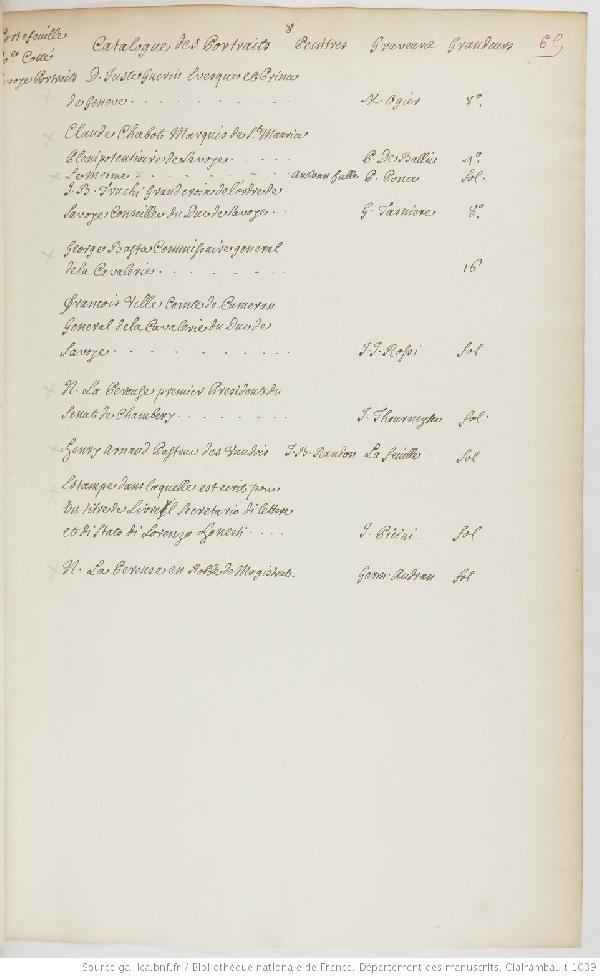 8
Portefeuille Catalogue des Portraits Peintres Graveurs Grandeurs 65
Cotté
Savoye Portraits D. Juste Guerin Evesque et Prince
de Geneve . . . . . . . . . N. Ogier 8º.
Claude Chabot Marquis de St. Maurice
Plenipotentiaire de Savoye . . . . P. De Ballu 4º.
Le Meme . . . . . . . P. Ponce fol.
J. B. Truchi Grand croix de l'ordre de
Savoye Conseiller du Duc de Savoye . . G. Tasniere 8º
George Basta Commissaire general
de la Cavalerie . . . . . . . 16
François Ville Comte de Cameran
General de la Cavalerie du Duc de
Savoye . . . . . . . . . . J. J. Rossi fol
N. La Perouse premier President du
Senat de Chambery . . . . . . . J. Thourneysen fol.
Henry Arnaud Pasteur des Vaudois J. B. Randon La feuille fol
Estampe dans laquelle est ecrit pour
un titre de Livre Il Secretario di lettere
et di Stato di Lorenzo . . . . J. Picini fol
N. La Perouse en Robbe de Magistrat. Germ. Audran fol
Source gallica.bnf.fr / Bibliothèque nationale de France. Département des manuscrits. Clairambault 1039